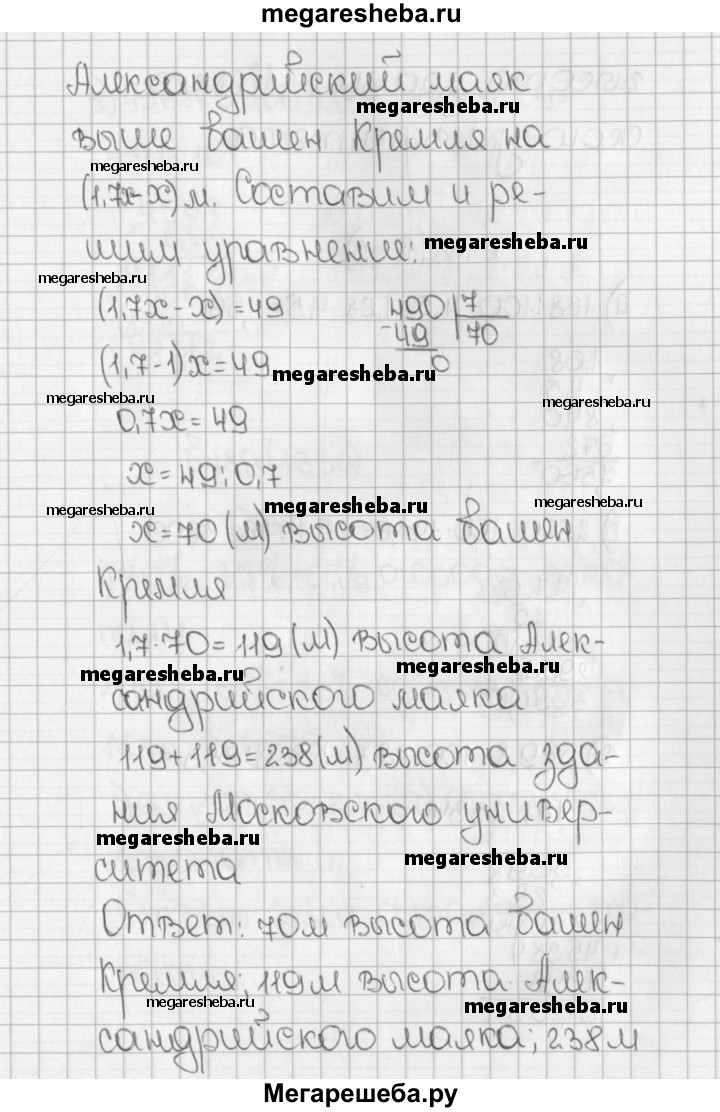 megaresheba.ru
Александрийский маяк
megaresheba.ru
выше башен Кремля на
megaresheba.ru
(1,7х-х) м. Составим и ре-
шим уравнение:
megaresheba.ru
megaresheba.ru
(1,7х-х)=49
490 7
-49 70
0
(1,7-1)х=49
megaresheba.ru
megaresheba.ru
megaresheba.ru
0,7х=49
х=49:0,7
megaresheba.ru
megaresheba.ru
megaresheba.ru
х=70 (м) высота башен
Кремля
1,7·70=119 (м) высота Алек-
megaresheba.ru
megaresheba.ru
сандрийского маяка
119+119=238 (м) высота зда-
ния Московского универ-
megaresheba.ru
megaresheba.ru
ситета
Ответ: 70м высота башен
Кремля; 119м высота Алек-
megaresheba.ru
megaresheba.ru
сандрийского маяка; 238м
Мегарешеба.ру